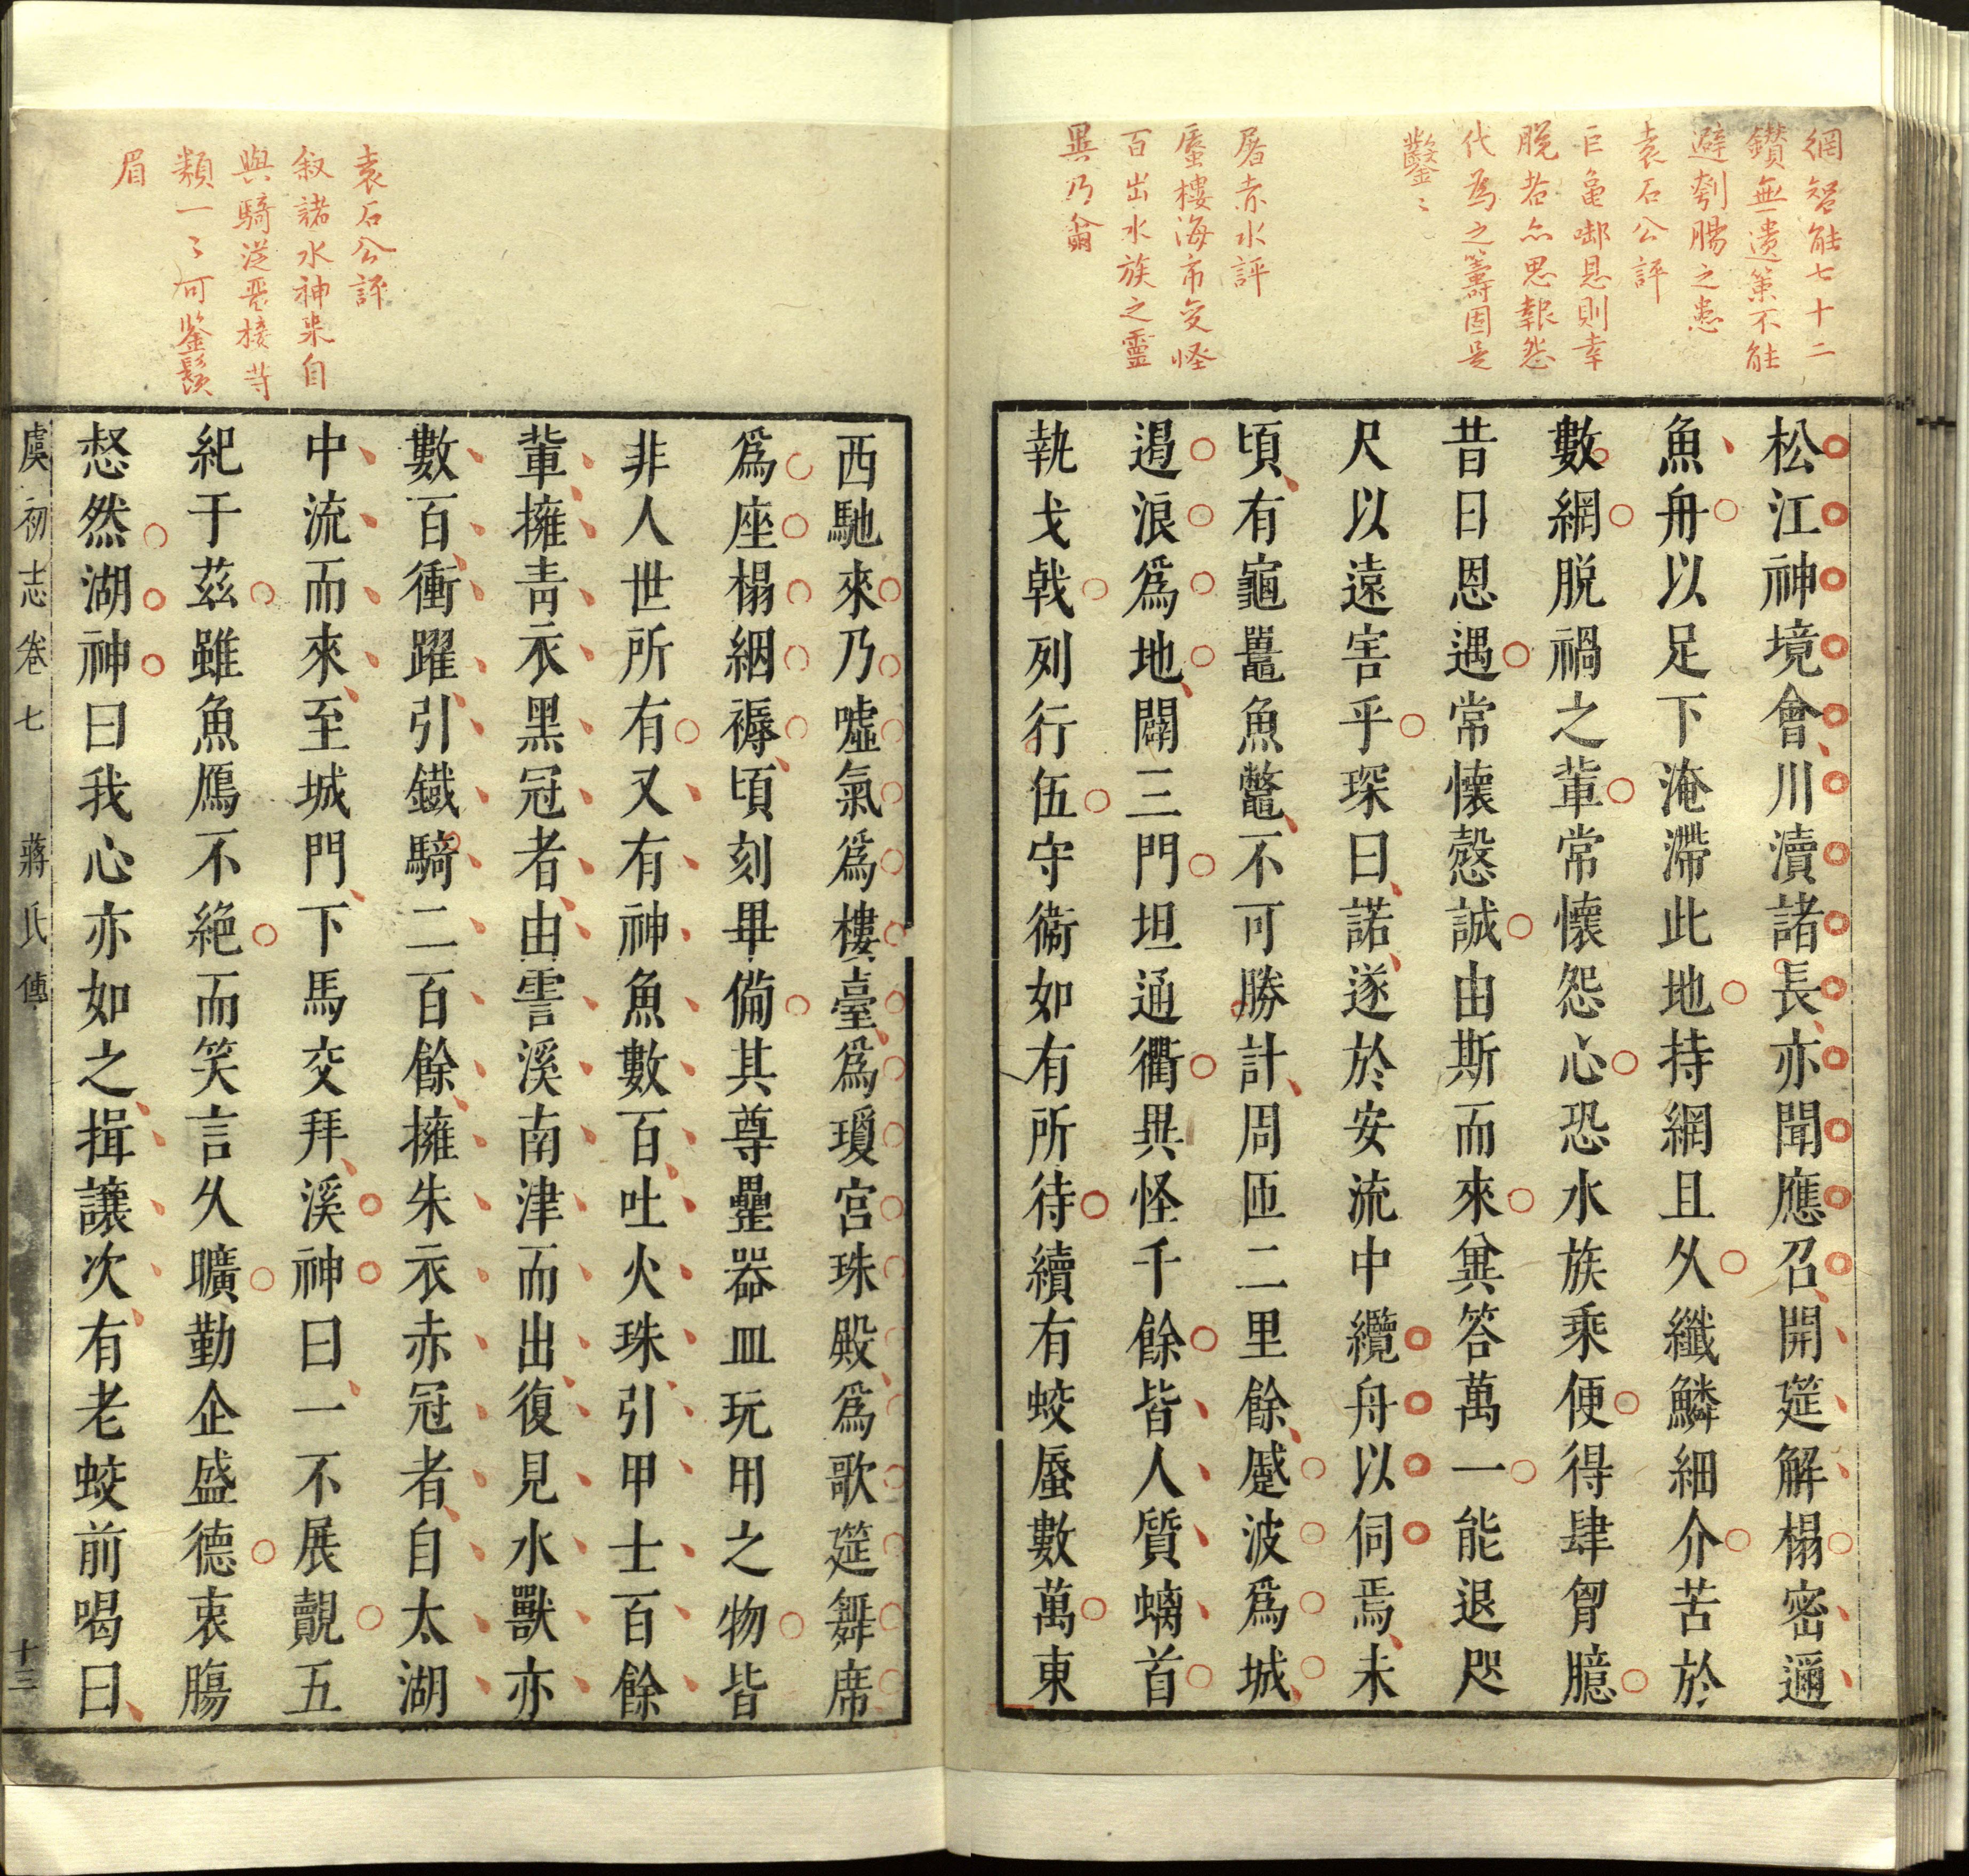 網智能七十二
鑚無遺策不能
避刳腸之患
袁石公評
巨龜啣恩則幸
脫者亦思報怨
代為之籌固是
鑿鑿〻
屠赤水評
蜃樓海市変怪
百出水族之靈
異乃爾
松江神境會川瀆諸長亦聞應召開筵解榻密邇
魚舟以足下淹滯此地持網且久纖鱗細介苦於
數網脫禍之輩常懷怨心恐水族乘便得肆胷臆
昔日恩遇常懷慤誠由斯而來兾答萬一能退咫
尺以遠害乎琛曰諾遂於安流中纜舟以伺焉未
頃有龜鼉魚鼈不可勝計周匝二里餘蹙波爲城
遏浪爲地闢三門坦通衢異怪千餘皆人質螭首
執戈戟列行伍守衞如有所待續有蛟蜃數萬東
袁石公評
叙諸水神來自
與騎從晋接等
類一〻可鑒鬚
眉
西馳來乃噓氣爲樓臺爲瓊宮珠殿爲歌筵舞席
爲座榻絪褥頃刻畢備其尊罍器皿玩用之物皆
非人世所有又有神魚數百吐火珠引甲士百餘
輩擁青衣黑冠者由霅溪南津而出復見水獸亦
數百銜躍引鐵騎二百餘擁朱衣赤冠者自太湖
中流而來至城門下馬交拜溪神曰一不展覿五
紀于茲雖魚鴈不絶而笑言久曠勤企盛德衷腸
惄然湖神曰我心亦如之揖讓次有老蛟前喝曰
虞初志卷七 蔣氏傳 十三